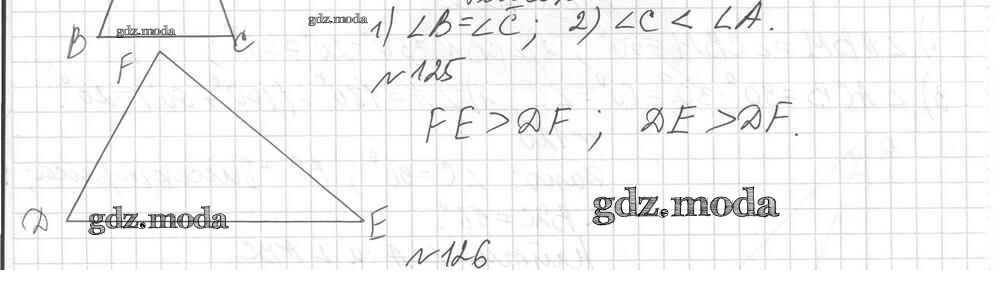 gdz.moda 1) ∠B=∠C; 2) ∠C < ∠A.
B gdz.moda C
№125
F
FE > DF; DE > DF.
gdz.moda
D gdz.moda E
№126